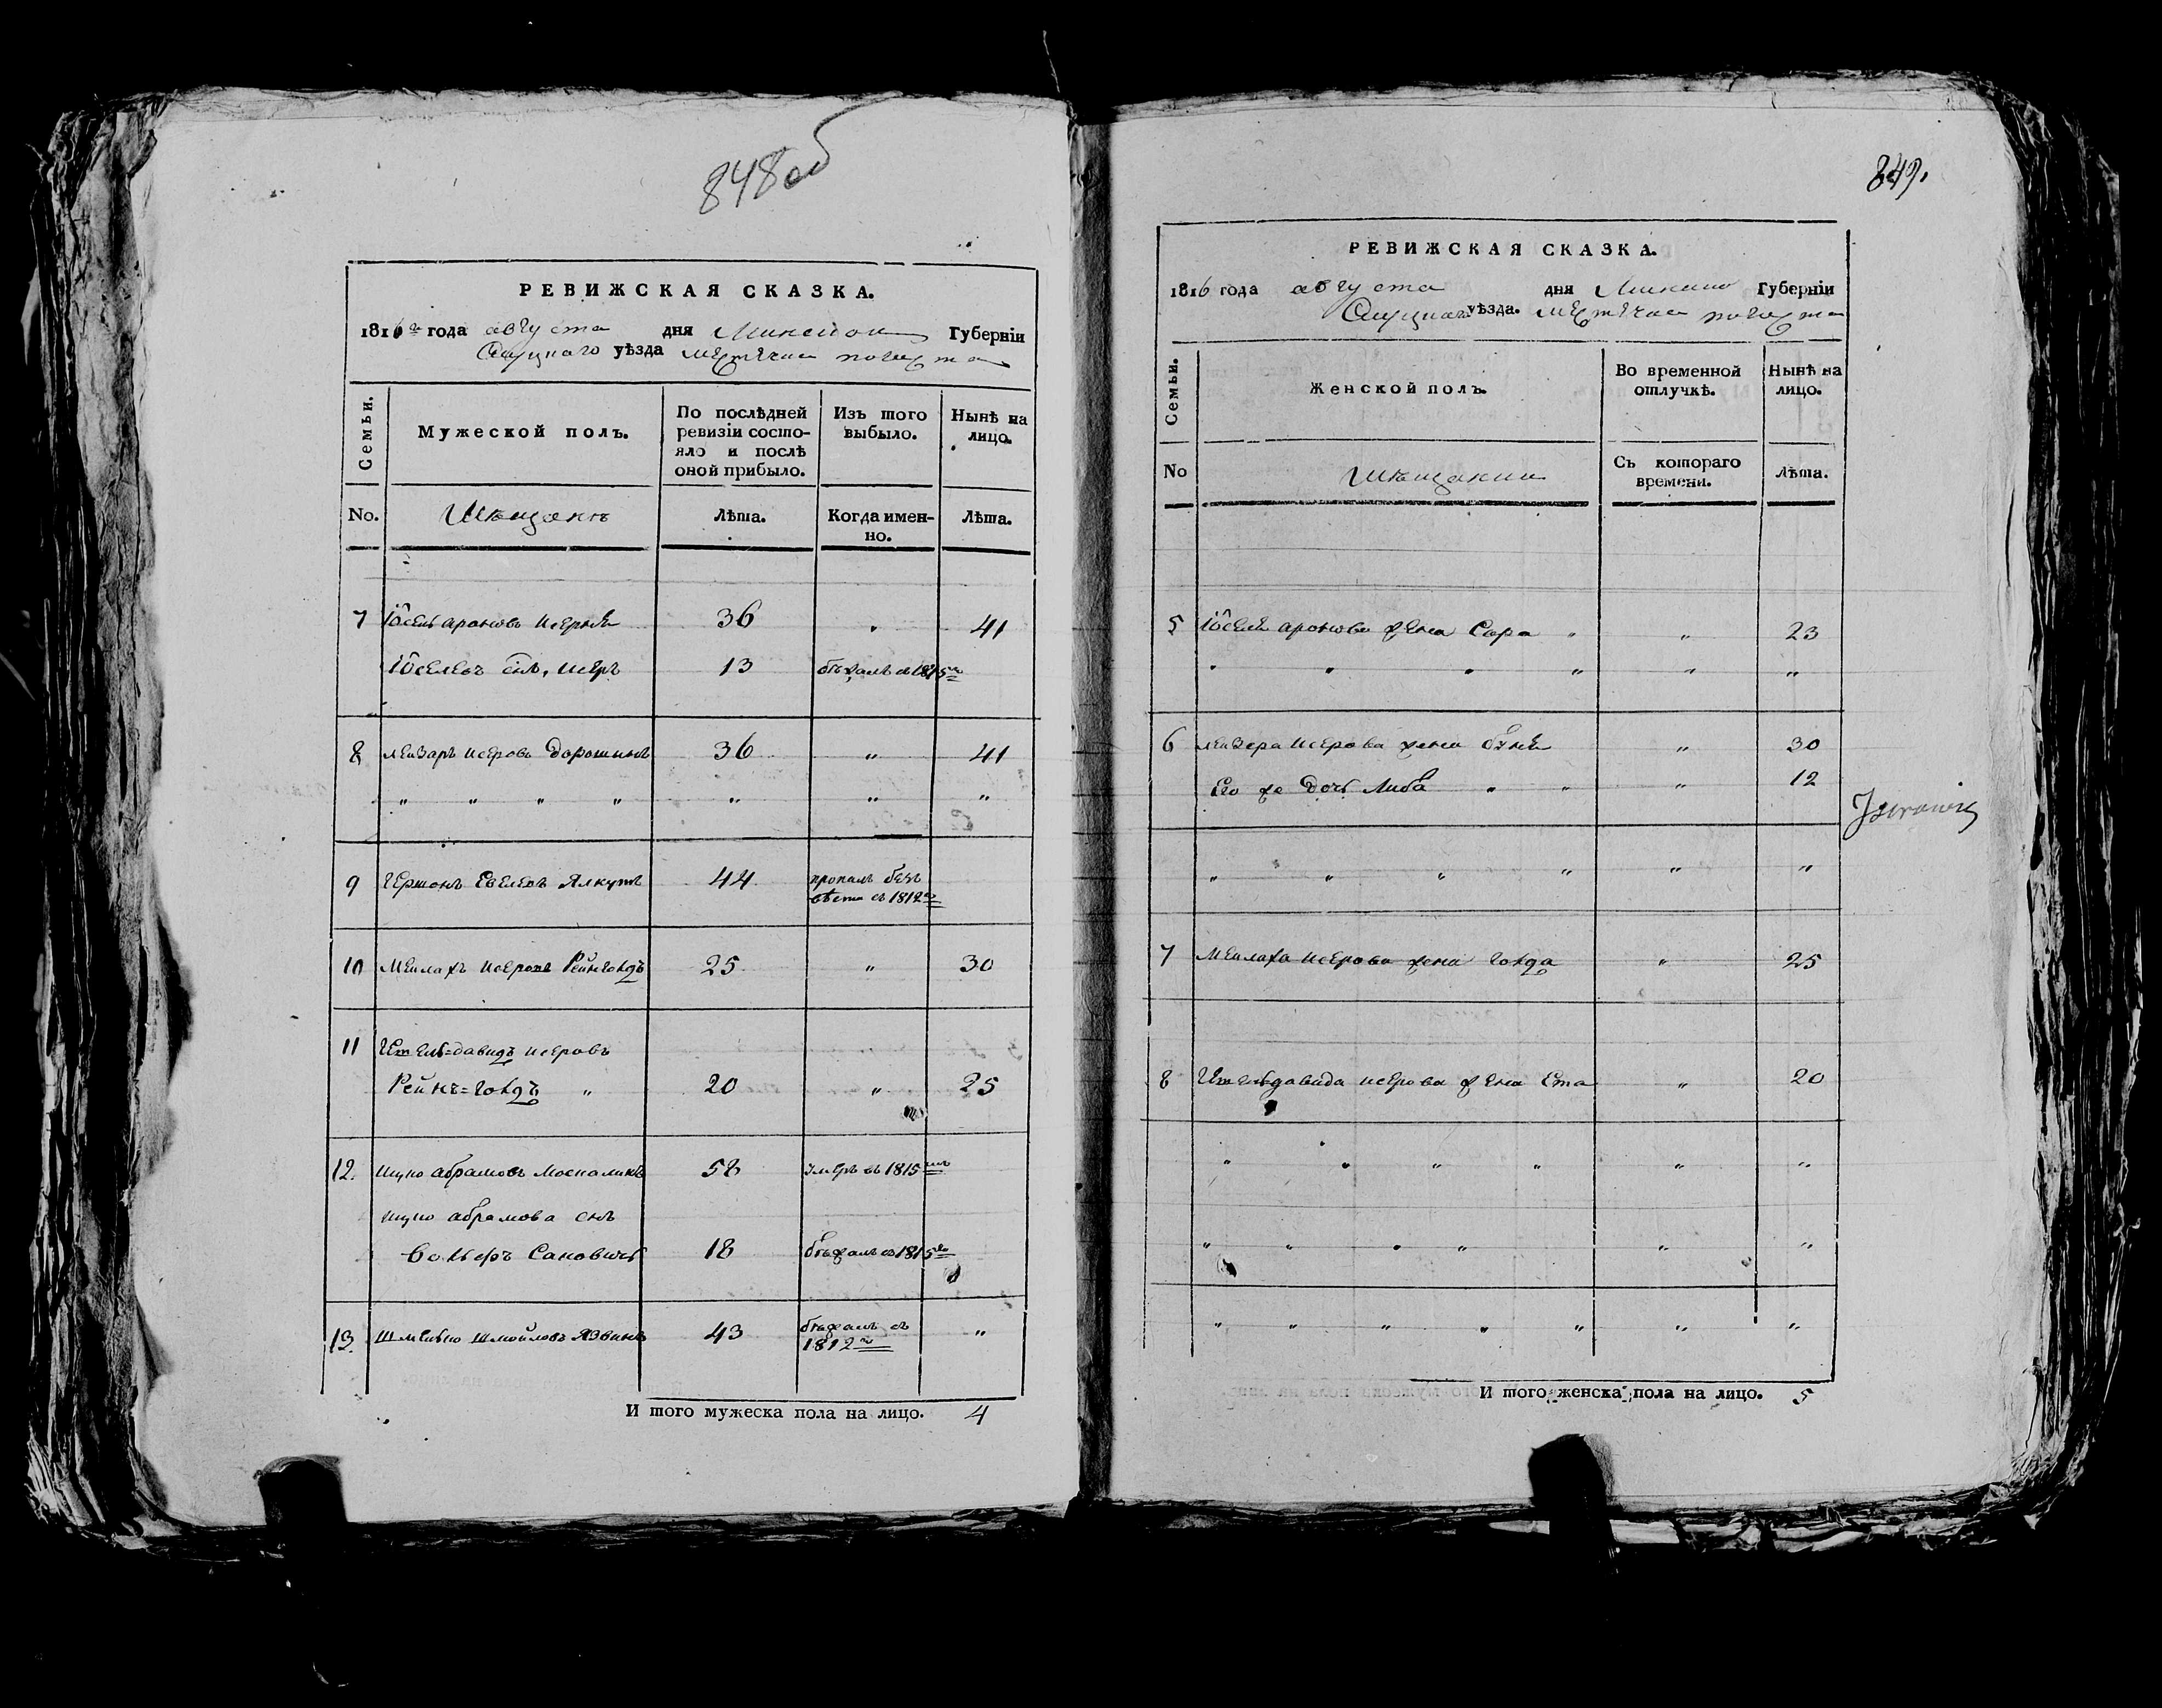 848 об
РЕВИЖСКАЯ СКАЗКА.
1816 го года августа дня Минской Губерніи
Слуцкаго уѣзда местечка погоста
Семьи.
Мужеской полъ.
По послѣдней
ревизіи состо-
яло и послѣ
оной прибыло.
Изъ того
выбыло.
Нынѣ на
лицо.
No.
Мещане
Лѣта.
Когда имен-
но.
Лѣта.
7 Іосель ароновъ 36 " 41
Іоселевъ снъ, 13 бежалъ въ 1815 го
8 Лейзаръ исеровъ Дорошинъ 36 " 41
" " " " " " "
9 Гершонъ Евелевъ Ялкутъ 44 пропалъ безъ
вѣсти въ 1812 го
10 Меилахъ исеровъ Реинголдъ 25 " 30
11 давидъ исеровъ
Рейнъ=голдъ " 20 " 25
12. ицко абрамовъ 58 умеръ въ 1815
ицко абрамова снъ
18 бежалъ въ 1815 го
13. Шмойловъ 43 бежалъ въ "
1812 го
И того мужеска пола на лицо. 4
849.
РЕВИЖСКАЯ СКАЗКА.
1816 года августа дня Минской Губерніи
Слуцкаго уѣзда. местечка погоста
Семьи.
Женской полъ.
Во временной
отлучкѣ.
Нынѣ на
лицо.
No
Мещанки
Съ котораго
времени.
Лѣта.
5 Іоселя аронова жена Сора " " 23
" " " " " "
6 Лейзера исерова жена " 30
Его же дочь Либа " " " 12
" " " " " "
7 Меилаха исерова жена голда " 25
8 давида исерова жена Ета " 20
" " " " " "
" " " " " "
" " " " " " "
И того женска пола на лицо. 5